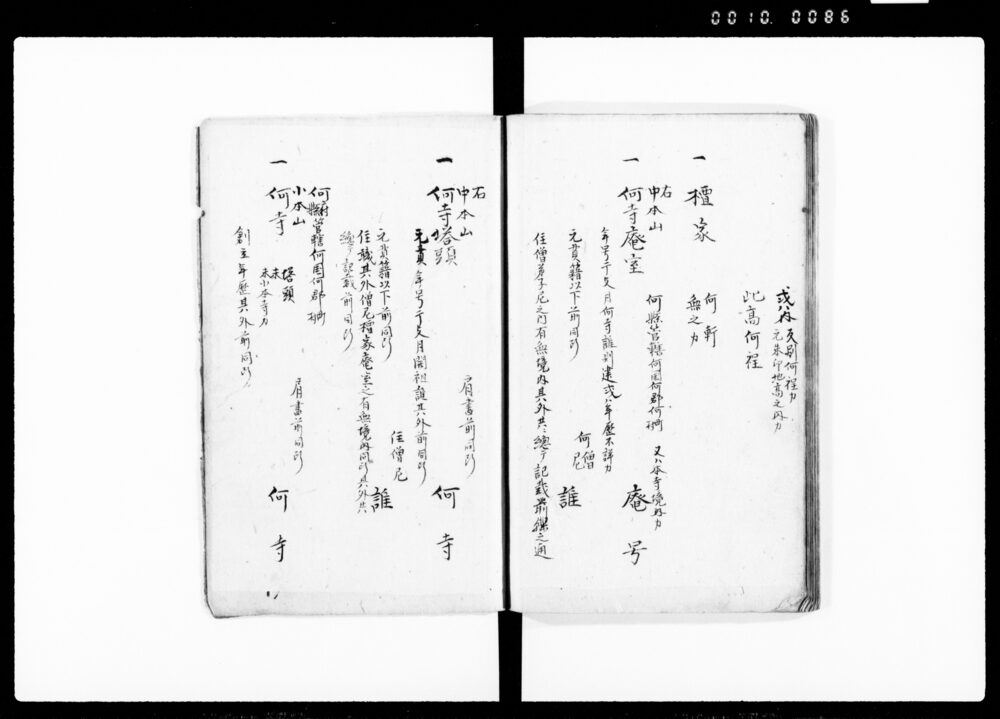 0010 0086
或ハ外反別何程カ
元朱印地高之内カ
此高何程
一 檀家 何軒
無之カ
右
中本山 何縣管轄何国何郡何町 又ハ本寺境内カ
一 何寺庵室 庵号
年号干支月何寺誰創建或ハ年歴不詳カ
何僧
尼 誰
元貫籍以下前同断
住僧弟子尼之内有無境内其外共総テ記載前條之通
右
中本山 肩書前同断
一 何寺塔頭 何寺
元貫年号干支月開祖誰其外前同断
住僧尼 誰
元貫籍以下前同断
住職其外僧尼檀家庵室之有無境内同断其外共
総テ記載前同断
何府縣管轄何国何郡何町
小本山 肩書前同断
一 何寺 塔頭
末小本寺カ 何寺
創立年歴其外前同断